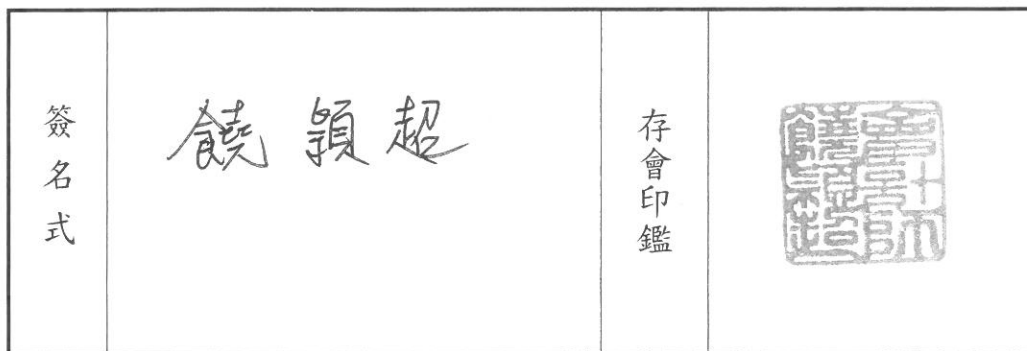 簽名式
饒穎超
存會印鑑
會計師
饒穎超